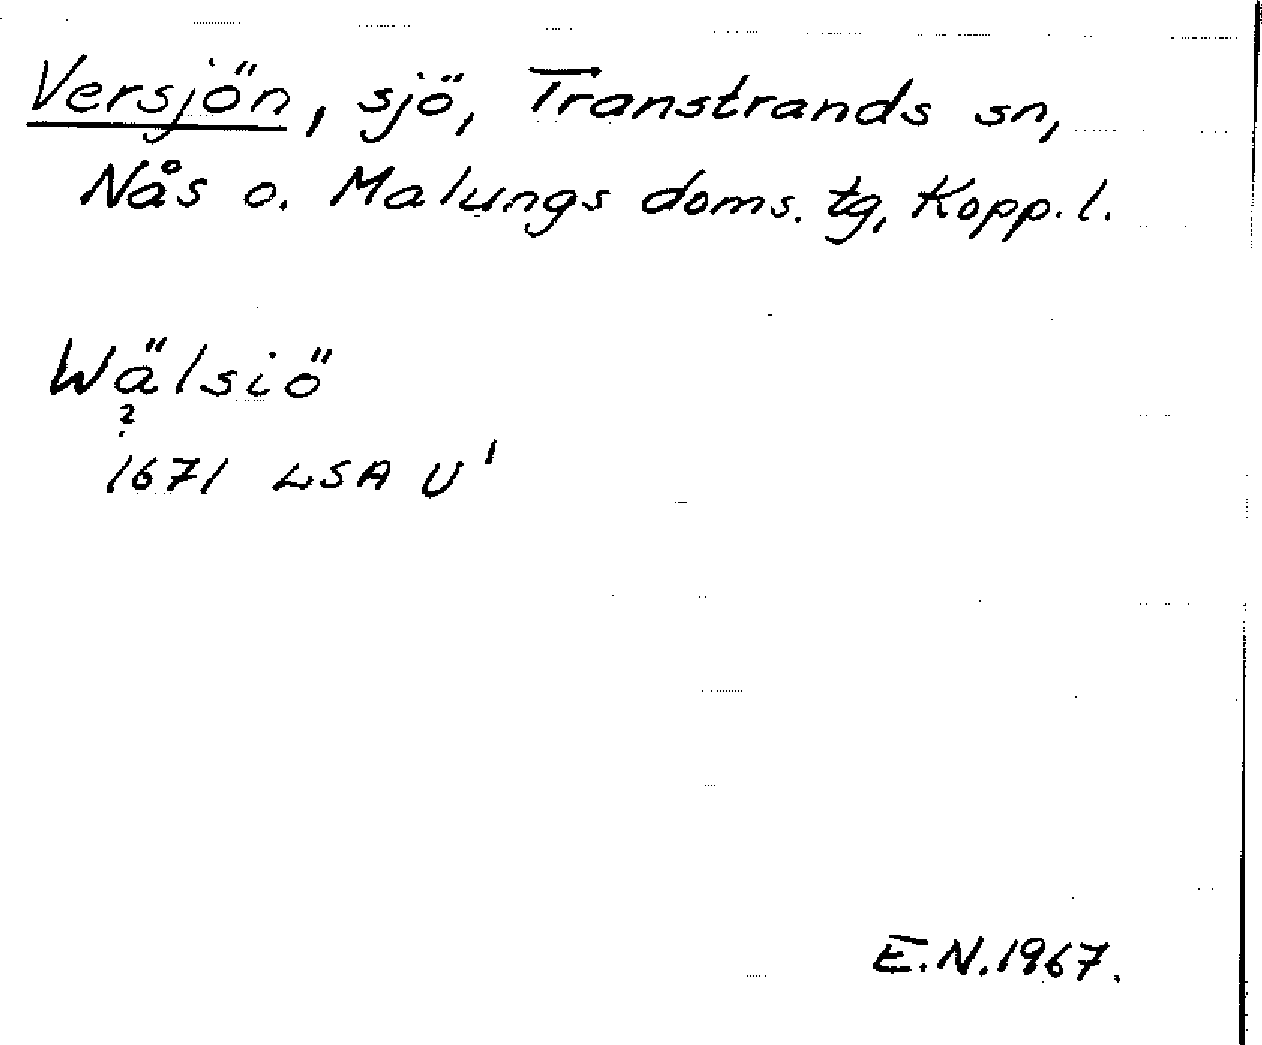 Versjön, sjö, Transtrands sn,
Nås o. Malungs doms. tg, Kopp. l.
Wälsiö
?
1671 LSA U'
E.N. 1967.